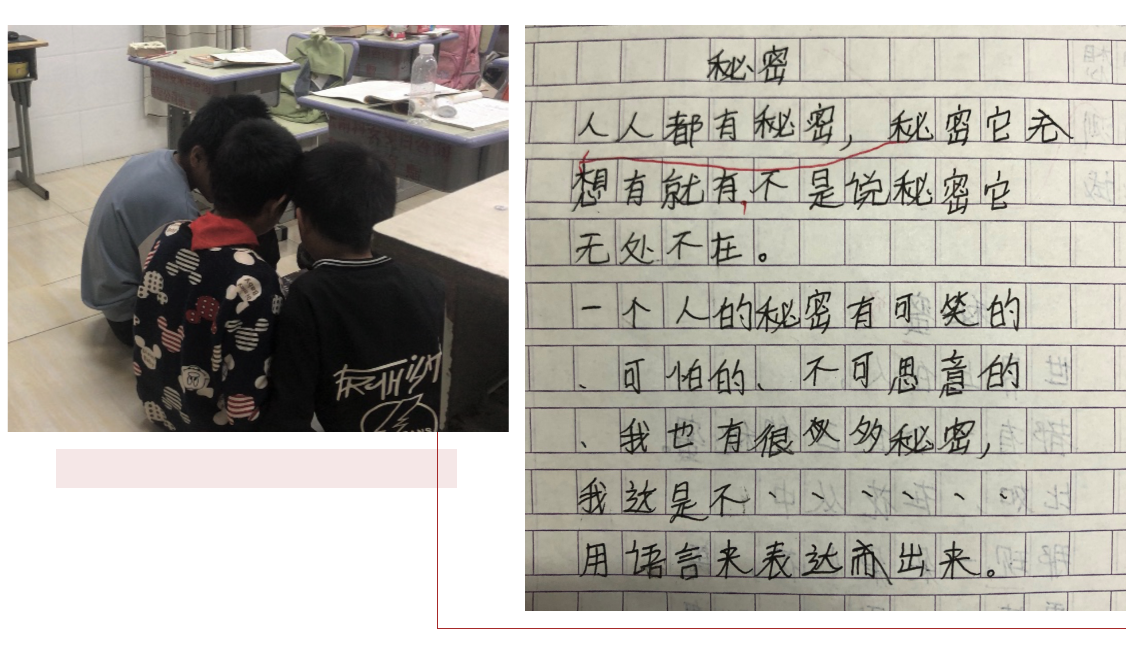 秘密
人人都有秘密，秘密它无
想有就有，不是说秘密它
无处不在。
一个人的秘密有可笑的
、可怕的、不可思意的
、我也有很多秘密，
我这是不、、、、、、
用语言来表达而出来。